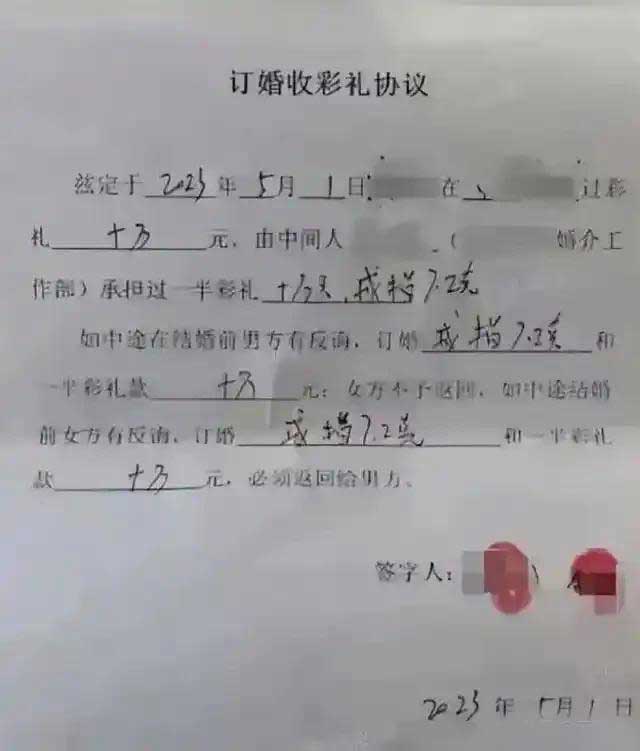 订婚收彩礼协议
兹定于 2023 年 5 月 1 日 在 过彩
礼 十万 元，由中间人 （ 婚介工
作部）承担过一半彩礼 十万元，戒指7.2克
如中途在结婚前男方有反诲，订婚 戒指7.2克 和
一半彩礼款 十万 元；女方不予返回，如中途结婚
前女方有反诲，订婚 戒指7.2克 和一半彩礼
款 十万 元，必须返回给男方。
签字人：
2023 年 5月1日